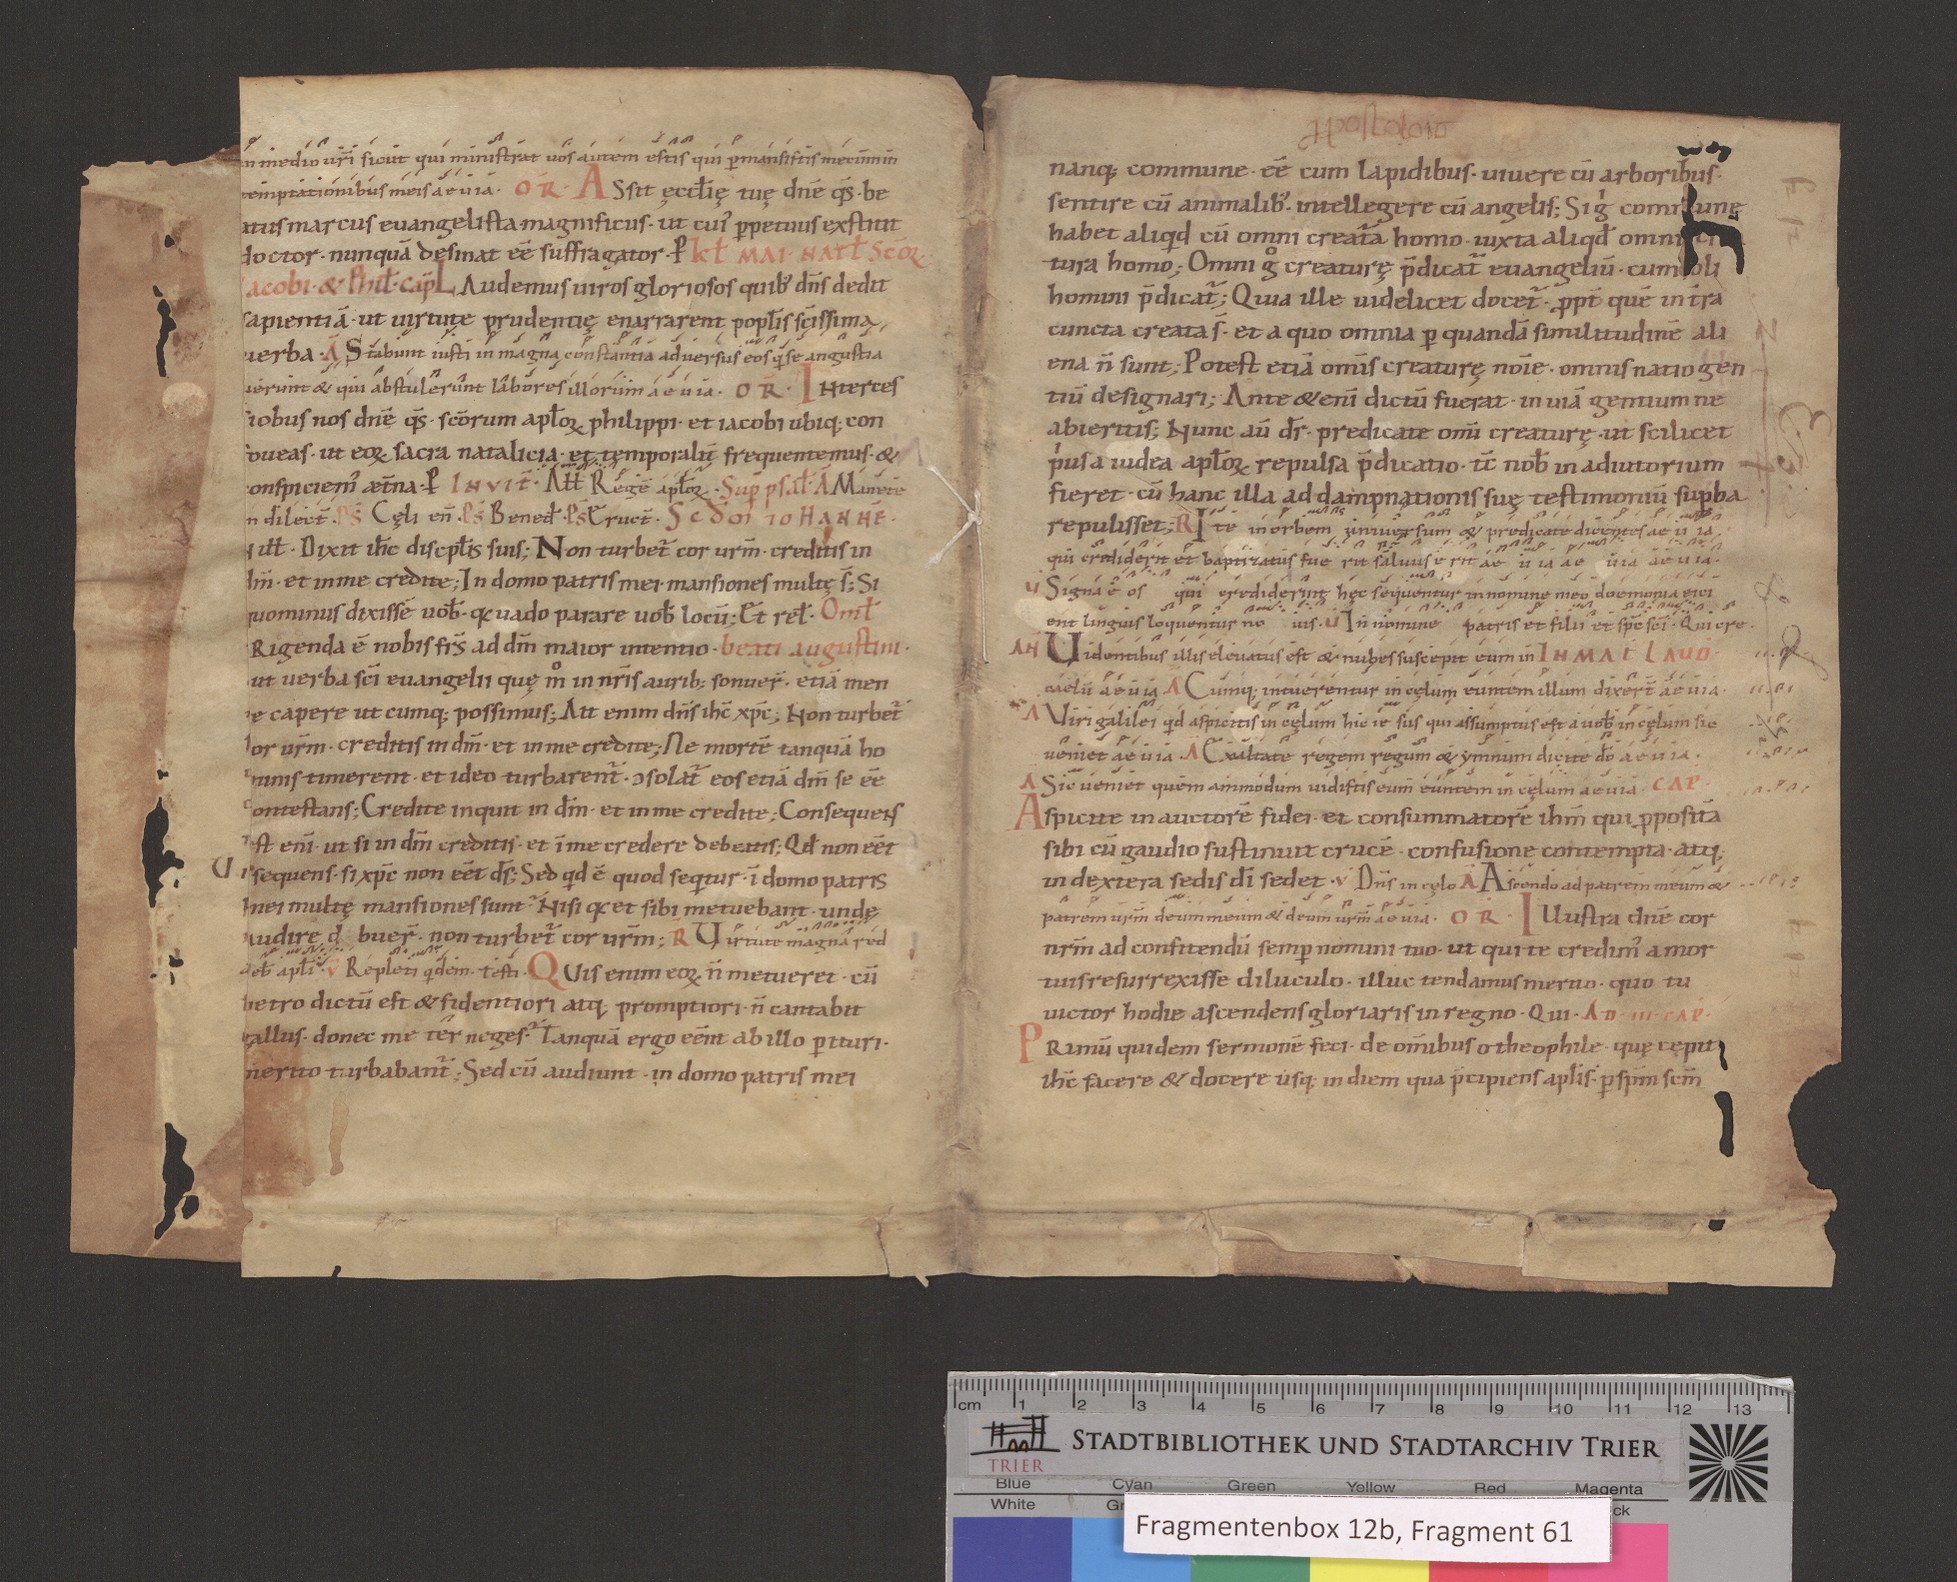 n medio ur̄i sicut qui ministrat uos autem estis qui p̄mansistis mecum in
temptationibus meis aeuia. OR. ASsit ęccłię tuę dn̄e qs̄. be
atus marcus euangelista magnificus. ut cui' ꝑpetuus exstitit
doctor. nunquā desinat eē suffragator. ꝑ kł MAI. NATł Sc̄oꝝ
acobi. & Phił. cap̄ LAudemus uiros gloriosos quib' dn̄s dedit
sapientiā. ut uirtute prudentię enarrarent popłis sc̄issima
uerba. Ā Stabunt iusti in magna constantia aduersus eos q̇ se angustia
uerunt & qui abstulerunt labores illorum aeuia. OR. Interces
iobus nos dn̄e qs̄. sc̄orum apłoꝝ philippi. et iacobi ubiq; con
oueas. ut eoꝝ sacra natalicia. et temporalit̄ frequentemus. &
onspiciem' æt̄na. ꝑ INVIT̄. Ałł Regē apłoꝝ. Sup̄ psał. Ā Manete
n dilect̄. Ps̄ Cęli en̄. Ps̄ Bened̄. Ps̄ Eruct̄. Sc̄dm̄ IOHANNE.
iłł. Dixit ih̄c discipłis suis; Non turbet̄ cor ur̄m. creditis in
m̄. et in me credite; In domo patris mei. mansiones multę s̄; Si
uominus dixissē uob̄. q̄ uado parare uob̄ locū; Et reł. Omł
RIgenda ē nobis frs̄ ad dm̄ maior intentio. beati augustini.
ut uerba sc̄i euangelii quę m̊ in nr̄is aurib; sonuer̄. etiā men
e capere ut cumq; possimus; Att enim dn̄s ih̄c xp̄c; Non turbet̄
or ur̄m. creditis in dm̄. et in me credite; Ne mortē tanquā ho
inis timerent. et ideo turbarent̄. ɔsolat̄ eos etiā dm̄ se eē
ontestans; Credite inquit in dm̄. et in me credite; Consequens
st enī. ut si in dm̄ creditis. et ī me credere debetis; Qd̄ non eēt
sequens. si xp̄c non eēt ds̄; Sed qd̄ ē quod seqtur. ī domo patris
mei multę mansiones sunt? Nisi q̄ et sibi metuebant. unde
audire d buer̄. non turbet̄ cor ur̄m; R Uirtute magna red
deb̄ apłi. V Repleti qdem. testi. QUis enim eoꝝ n̄ metueret. cū
petro dictū est & fidentiori atq; promptiori. n̄ cantabit
gallus. donec me ter̄ neges? Tanquā ergo eēnt ab illo ꝑituri.
merito turbabant̄; Sed cū audiunt. in domo patris mei
nanq; commune. eē cum lapidibus. uiuere cū arboribus.
sentire cū animalib'. intellegere cū angelis; Si g̊ commune
habet aliqd cū omni creat̄a homo. iuxta aliqd̄ omnis
tura homo; Omni g̊ creaturę p̄dicat̄ euangeliū. cum soli
homini p̄dicat̄; Quia ille uidelicet docet̄. ꝓpt̄ quē in tr̄a
cuncta creata s̄. et a quo omnia ꝑ quandā similitudinē ali
ena n̄ sunt; Potest etiā omīs creaturę noīe. omnis natio gen
tiū designari; Ante & enī dictū fuerat. in uiā gentium ne
abieritis; Nunc aū dr̄. predicate omī creaturę. ut scilicet
p̄us a iudea apłoꝝ repulsa p̄dicatio. tc̄ nob̄ in adiutorium
fieret. cū hanc illa ad dampnationis suę testimoniū supba
repulisset; R Ite in orbem uniuersum & predicate dicentes ae u ia
qui crediderit et baptizatus fue rit saluus e rit ae u ia ae uia aeuia.
V Signa ē os qui crediderint hęc sequentur in nomine meo doemonia eici
ent linguis loquentur no uis. V In nomine patris et filii et sp̄c sc̄i. Qui cre.
AN Uidentibus illis eleuatus est & nubes suscepit eum in IN MAT LAUD.
caelū aeuia A Cumq; intuerentur in cęlum euntem illum dixer̄t aeuia.
A Uiri galilei qd aspicitis in cęlum hic ie sus qui assumptus est a uob̄ in cęlum sic
ueniet aeuia. A Exaltate regem regum & ymnum dicite dō aeuia.
A Sic ueniet quem ammodum uidistis eum euntem in cęlum aeuia. CAP.
Aspicite in auctorē fidei. et consummatorē ih̄m qui ꝓposita
sibi cū gaudio sustinuit crucē. confusione contempta. atq;
in dextera sedis dī sedet. V Dn̄s in cęlo A Ascendo ad patrem meum &
patrem ur̄m deum meum & deum ur̄m aeuia. OR. IUustra dn̄e cor
nr̄m ad confitendū semp nomini tuo. ut qui te credim' a mor
tuis resurrexisse diluculo. illuc tendamus merito. quo tu
uictor hodie ascendens gloriaris in regno. Qui. AD III CAP.
PRimū quidem sermonē feci. de om̄ibus o theophile. quę cępit
ih̄c facere & docere usq; in diem qua p̄cipiens apłis. ꝑ spm̄ scm̄
cm 1 2 3 4 5 6 7 8 9 10 11 12 13
TRIER
STADTBIBLIOTHEK UND STADTARCHIV TRIER
Blue Cyan Green Yellow Red Magenta
White
Fragmentenbox 12b, Fragment 61